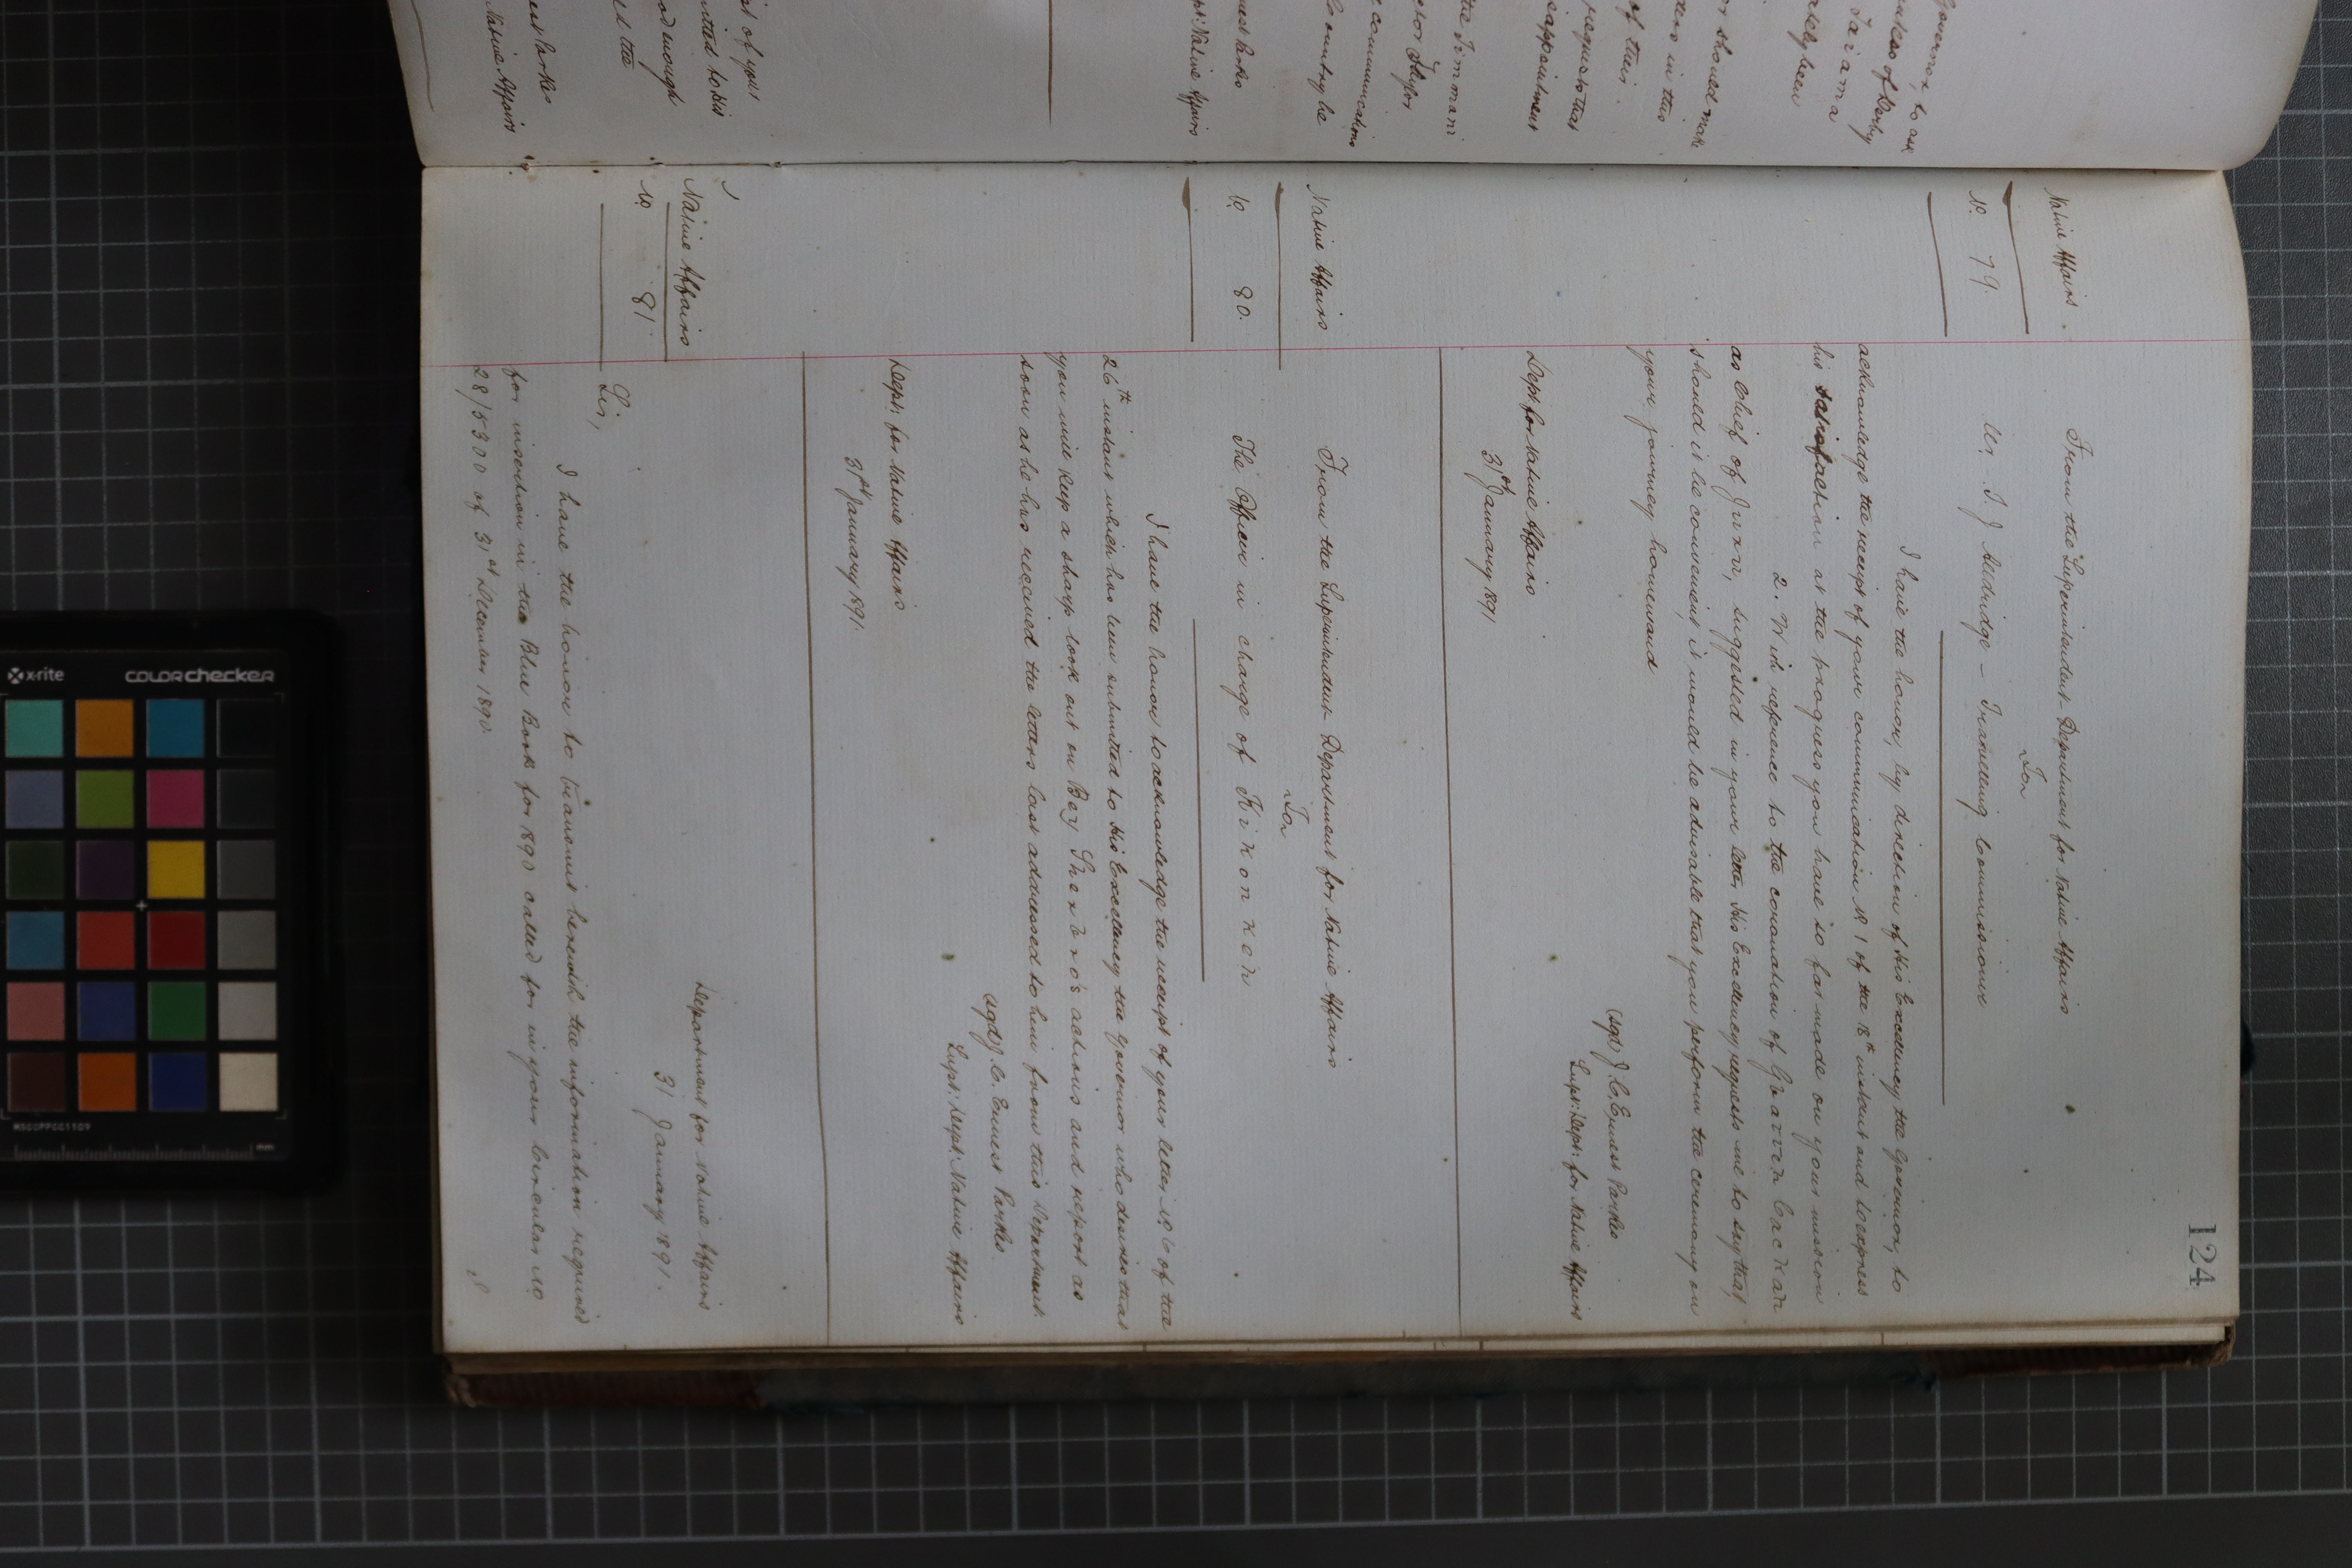 124
Native Affairs
No. 79.
From the Superintendent Department for Native Affairs
For
Mr. T J Alldridge – Travelling Commissioner
I have the honor, by direction of His Excellency the Governor, to
acknowledge the receipt of your communication No 1 of the 18th instant and to express
his satisfaction at the progress you have so far made on your mission
2. With reference to the coronation of
as Chief of suggested in your letter, His Excellency requests me to say that,
should it be convenient, it would be advisable that you perform the ceremony on
your journey homeward
(sgd) J. C. Ernest Parkes
Supt: Dept: for Native Affairs
Dept. for Native Affairs
31st January 1891
Native Affairs
No 80.
From the Superintendent Department for Native Affairs
For
The Officer in charge of Kikonkeh
I have the honor to acknowledge the receipt of your letter No. 6 of the
26th instant which has been submitted to His Excellency the Governor who desires that
you will keep a sharp look out on Bey Sherbro's actions and report as
soon as he has received the letters last addressed to him from this Department.
(sgd) J. C. Ernest Parkes.
Supt: Dept: Native Affairs
Dept: for Native Affairs
31st January 1891.
Native Affairs
No 81.
Department for Native Affairs
31 January 1891.
Sir,
I have the honor to transmit herewith the information required
for insertion in the Blue Book for 1890 called for in your Circular No
28/5300 of 31st December 1890.
Governor, to ask
of Derby
Tairama
lately been
or should make
in this
of their
requests that
disappointment
the Timmani
Taylor
communications
Country be
Ernest Parkes
Dept: Native Affairs
of your
submitted to His
good enough
the
Ernest Parkes
Native Affairs
x-rite
colorchecker
MSCCPPCC1109
mm